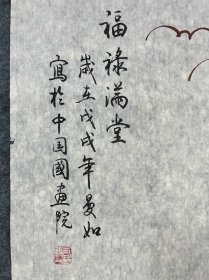 福禄满堂
歲在戊戌年曼如
寫於中国國畫院